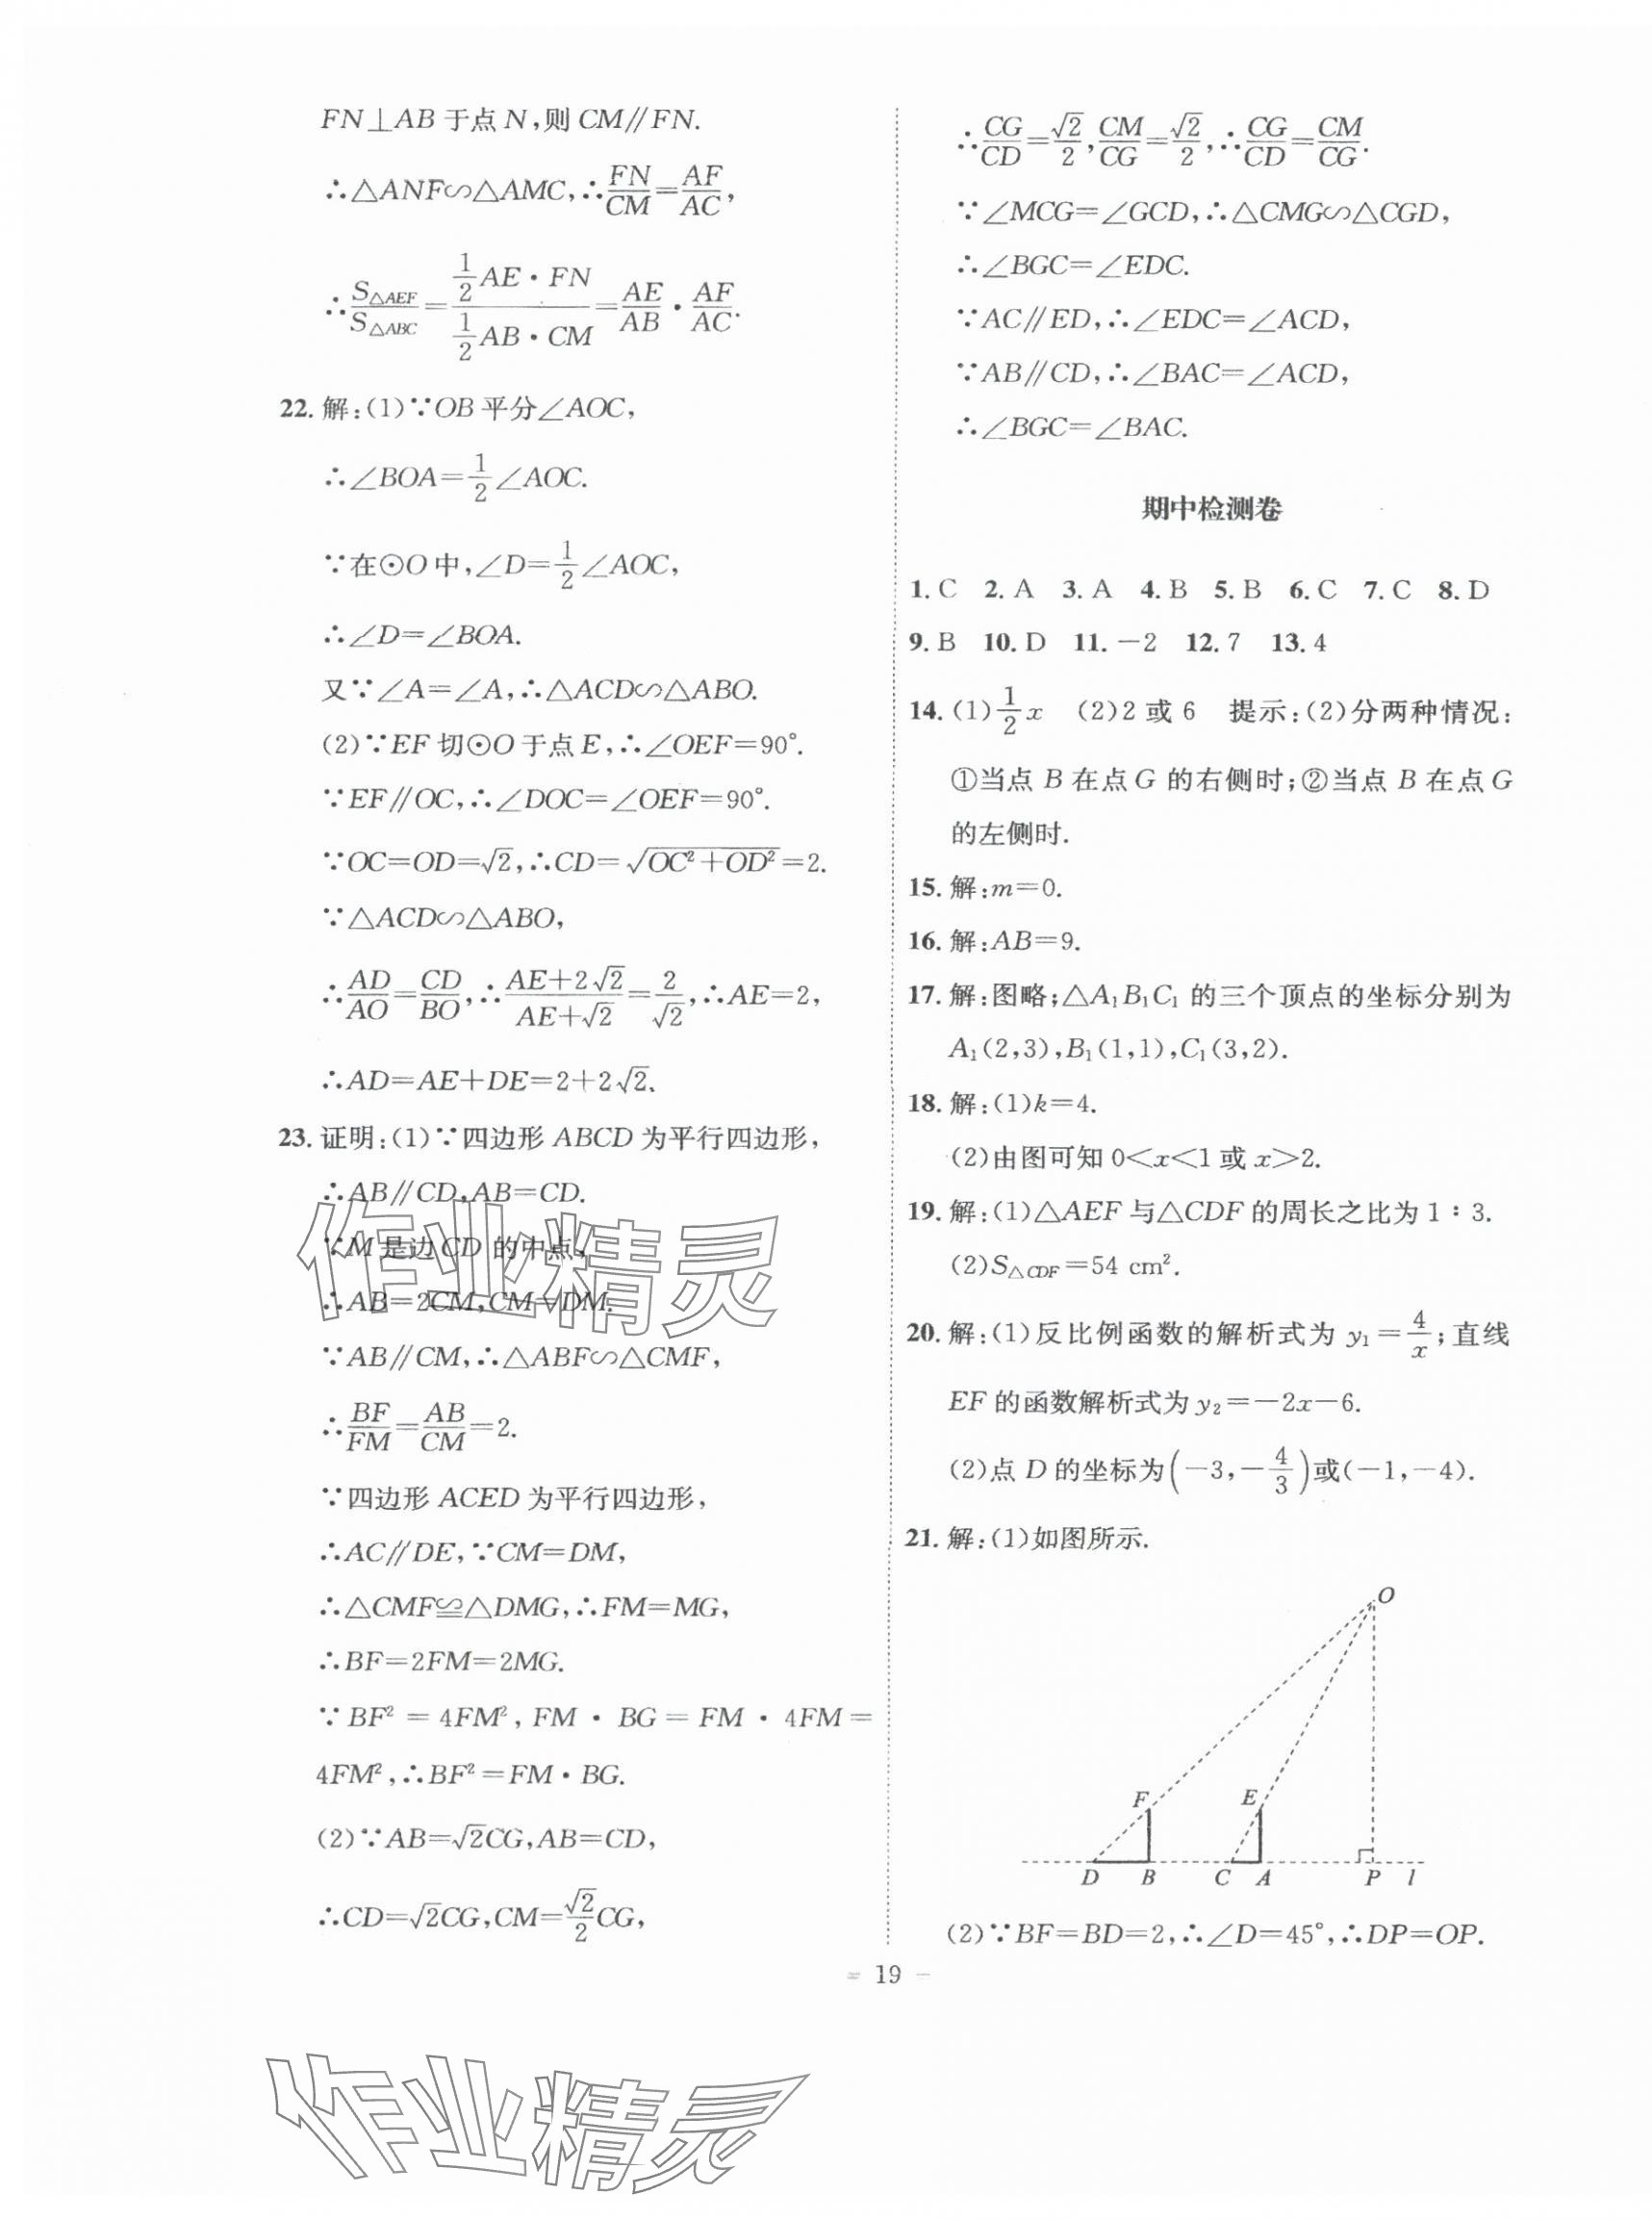 FN⊥AB于点N,则CM∥FN.
∴△ANF∽△AMC,∴FN/CM=AF/AC,
∴S△AEF/S△ABC=(1/2 AE·FN)/(1/2 AB·CM)=AE/AB·AF/AC.
22. 解:(1)∵OB平分∠AOC,
∴∠BOA=1/2∠AOC.
∵在⊙O中,∠D=1/2∠AOC,
∴∠D=∠BOA.
又∵∠A=∠A,∴△ACD∽△ABO.
(2)∵EF切⊙O于点E,∴∠OEF=90°.
∵EF∥OC,∴∠DOC=∠OEF=90°.
∵OC=OD=√2,∴CD=√(OC²+OD²)=2.
∵△ACD∽△ABO,
∴AD/AO=CD/BO,∴(AE+2√2)/(AE+√2)=2/√2,∴AE=2,
∴AD=AE+DE=2+2√2.
23. 证明:(1)∵四边形ABCD为平行四边形,
∴AB∥CD,AB=CD.
∵M是边CD的中点,
∴AB=2CM,CM=DM.
∵AB∥CM,∴△ABF∽△CMF,
∴BF/FM=AB/CM=2.
∵四边形ACED为平行四边形,
∴AC∥DE,∵CM=DM,
∴△CMF≌△DMG,∴FM=MG,
∴BF=2FM=2MG.
∵BF²=4FM²,FM·BG=FM·4FM=
4FM²,∴BF²=FM·BG.
(2)∵AB=√2CG,AB=CD,
∴CD=√2CG,CM=√2/2CG,
∴CG/CD=√2/2,CM/CG=√2/2,∴CG/CD=CM/CG.
∵∠MCG=∠GCD,∴△CMG∽△CGD,
∴∠BGC=∠EDC.
∵AC∥ED,∴∠EDC=∠ACD,
∵AB∥CD,∴∠BAC=∠ACD,
∴∠BGC=∠BAC.
期中检测卷
1. C 2. A 3. A 4. B 5. B 6. C 7. C 8. D
9. B 10. D 11. －2 12. 7 13. 4
14. (1)1/2x (2)2或6 提示:(2)分两种情况:
①当点B在点G的右侧时;②当点B在点G
的左侧时.
15. 解:m=0.
16. 解:AB=9.
17. 解:图略;△A₁B₁C₁的三个顶点的坐标分别为
A₁(2,3),B₁(1,1),C₁(3,2).
18. 解:(1)k=4.
(2)由图可知0<x<1或x>2.
19. 解:(1)△AEF与△CDF的周长之比为1∶3.
(2)S△CDF=54 cm².
20. 解:(1)反比例函数的解析式为y₁=4/x;直线
EF的函数解析式为y₂=－2x－6.
(2)点D的坐标为(－3,－4/3)或(－1,－4).
21. 解:(1)如图所示.
O
F E
D B C A P l
(2)∵BF=BD=2,∴∠D=45°,∴DP=OP.
19
作业精灵
作业精灵